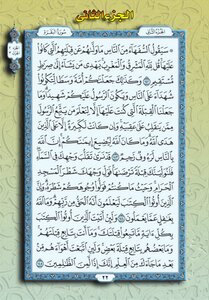 الجزء الثاني
الجزء الثاني سورة البقرة
۞ سَيَقُولُ ٱلسُّفَهَآءُ مِنَ ٱلنَّاسِ مَا وَلَّىٰهُمْ عَن قِبْلَتِهِمُ ٱلَّتِى كَانُوا۟
عَلَيْهَا قُل لِّلَّهِ ٱلْمَشْرِقُ وَٱلْمَغْرِبُ يَهْدِى مَن يَشَآءُ إِلَىٰ صِرَٰطٍ
مُّسْتَقِيمٍ ١٤٢ وَكَذَٰلِكَ جَعَلْنَٰكُمْ أُمَّةً وَسَطًا لِّتَكُونُوا۟
شُهَدَآءَ عَلَى ٱلنَّاسِ وَيَكُونَ ٱلرَّسُولُ عَلَيْكُمْ شَهِيدًا وَمَا
جَعَلْنَا ٱلْقِبْلَةَ ٱلَّتِى كُنتَ عَلَيْهَآ إِلَّا لِنَعْلَمَ مَن يَتَّبِعُ ٱلرَّسُولَ
مِمَّن يَنقَلِبُ عَلَىٰ عَقِبَيْهِ وَإِن كَانَتْ لَكَبِيرَةً إِلَّا عَلَى ٱلَّذِينَ
هَدَى ٱللَّهُ وَمَا كَانَ ٱللَّهُ لِيُضِيعَ إِيمَٰنَكُمْ إِنَّ ٱللَّهَ
بِٱلنَّاسِ لَرَءُوفٌ رَّحِيمٌ ١٤٣ قَدْ نَرَىٰ تَقَلُّبَ وَجْهِكَ فِى ٱلسَّمَآءِ
فَلَنُوَلِّيَنَّكَ قِبْلَةً تَرْضَىٰهَا فَوَلِّ وَجْهَكَ شَطْرَ ٱلْمَسْجِدِ
ٱلْحَرَامِ وَحَيْثُ مَا كُنتُمْ فَوَلُّوا۟ وُجُوهَكُمْ شَطْرَهُۥ وَإِنَّ
ٱلَّذِينَ أُوتُوا۟ ٱلْكِتَٰبَ لَيَعْلَمُونَ أَنَّهُ ٱلْحَقُّ مِن رَّبِّهِمْ وَمَا ٱللَّهُ
بِغَٰفِلٍ عَمَّا يَعْمَلُونَ ١٤٤ وَلَئِنْ أَتَيْتَ ٱلَّذِينَ أُوتُوا۟ ٱلْكِتَٰبَ
بِكُلِّ ءَايَةٍ مَّا تَبِعُوا۟ قِبْلَتَكَ وَمَآ أَنتَ بِتَابِعٍ قِبْلَتَهُمْ
وَمَا بَعْضُهُم بِتَابِعٍ قِبْلَةَ بَعْضٍ وَلَئِنِ ٱتَّبَعْتَ أَهْوَآءَهُم مِّنۢ
بَعْدِ مَا جَآءَكَ مِنَ ٱلْعِلْمِ إِنَّكَ إِذًا لَّمِنَ ٱلظَّٰلِمِينَ ١٤٥
٢٢